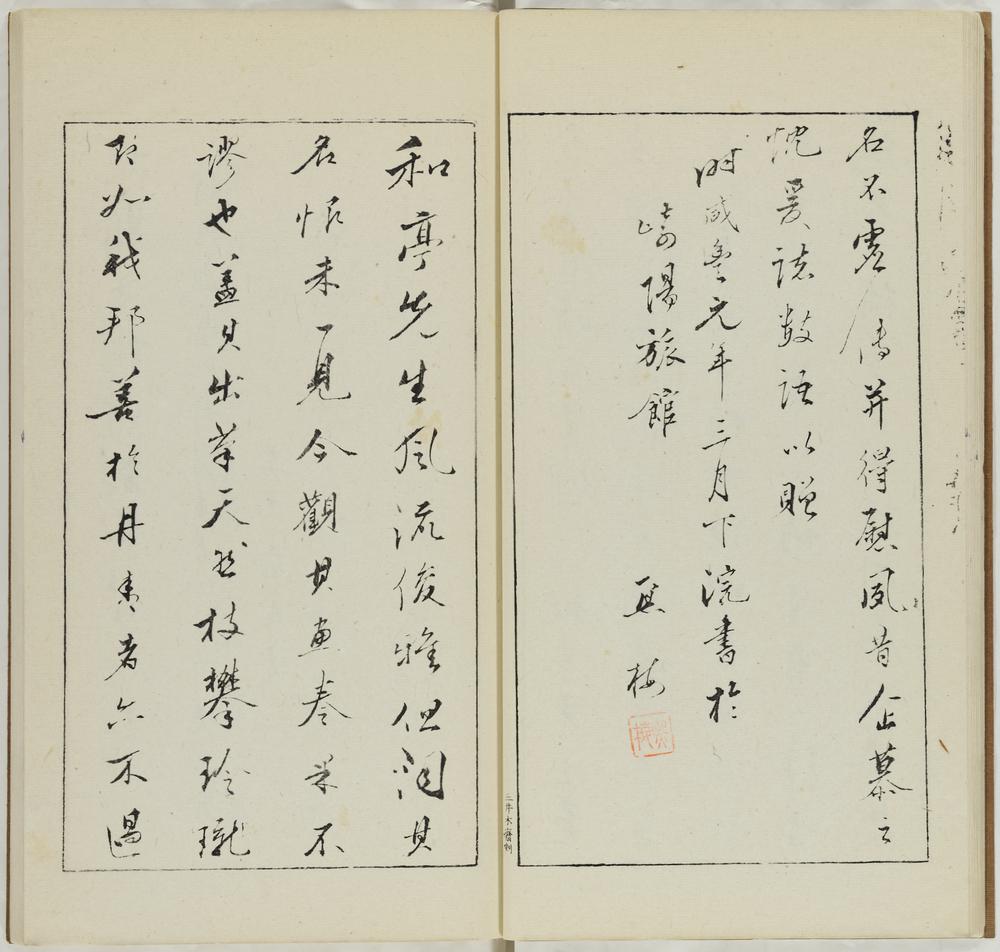 名不虛傳并得慰夙昔企慕之
忱爰誌数語以贈
時咸豐元年三月下浣書於
崎陽旅館
和亭先生風流俊雅但聞其
名恨未一見今觀其畫卷果不
謬也蓋其出筆天然枝攀玲瓏
即如我邦善於丹青者亦不過